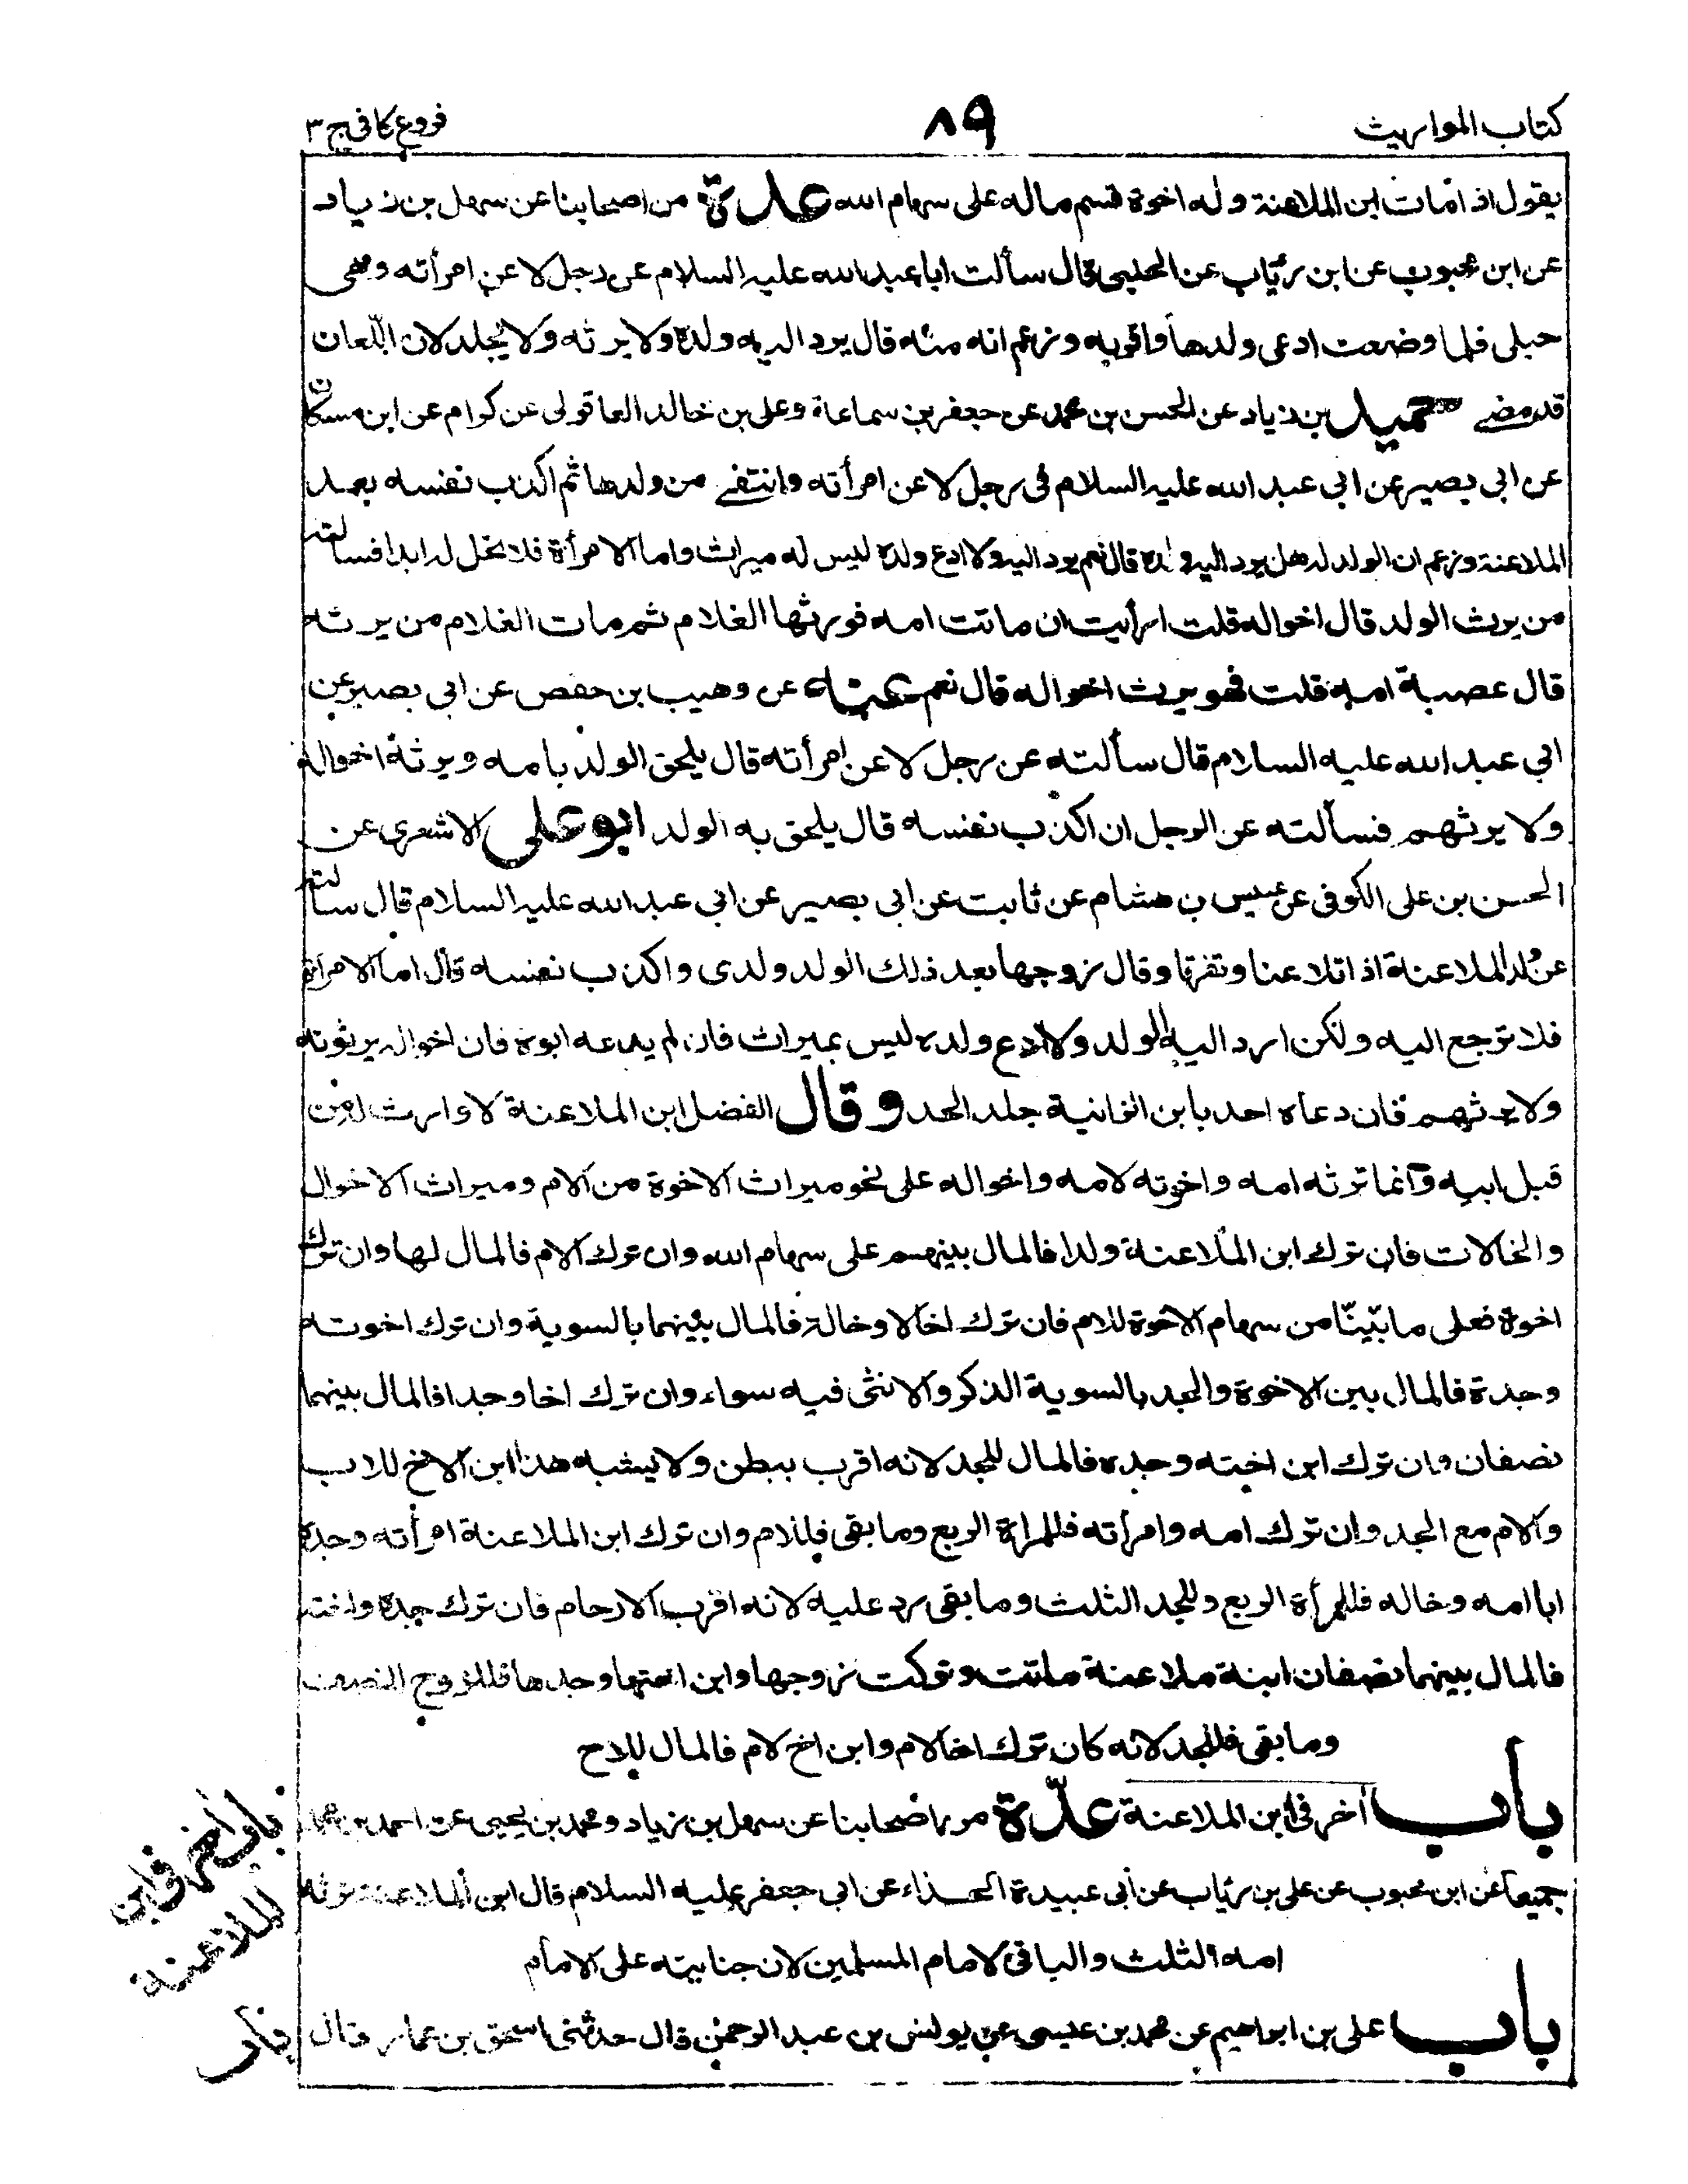 كتاب المواريث
٨٩
فروع كافى ج ٣
يقول اذا مات ابن الملاعنة وله اخوة قسم ماله على سهام الله عدة من اصحابنا عن سهل بن زياد
عن ابن محبوب عن ابن رئاب عن الحلبى قال سألت ابا عبد الله عليه السلام عن رجل لاعن امرأته وهى
حبلى فلما وضعت ادعى ولدها واقر به وزعم انه منه قال يرد اليه ولده ولا يرثه ولا يجلد لان اللعان
قد مضى حميد بن زياد عن الحسن بن محمد عن جعفر بن سماعة وعلى بن خالد العاقولى عن كرام عن ابن مسكان
عن ابى بصير عن ابى عبد الله عليه السلام فى رجل لاعن امرأته وانتفى من ولدها ثم اكذب نفسه بعد
الملاعنة وزعم ان الولد له هل يرد اليه ولده قال نعم يرد اليه ولا ادع ولده ليس له ميراث واما الامرأة فلا تحل له ابدا فسالته
من يرث الولد قال اخواله قلت ارأيت ان ماتت امه فورثها الغلام ثم مات الغلام من يرثه
قال عصبة امه قلت فهو يرث اخواله قال نعم عنه عن وهيب بن حفص عن ابى بصير عن
ابى عبد الله عليه السلام قال سألته عن رجل لاعن امرأته قال يلحق الولد بامه ويرثه اخواله
ولا يرثهم فسألته عن الرجل ان اكذب نفسه قال يلحق به الولد ابو على الاشعرى عن
الحسن بن على الكوفى عن عبيس بن هشام عن ثابت عن ابى بصير عن ابى عبد الله عليه السلام قال سالته
عن ولد الملاعنة اذا تلاعنا وتفرقا وقال زوجها بعد ذلك الولد ولدى واكذب نفسه قال اما الامرأة
فلا ترجع اليه ولكن ارد اليه الولد ولا ادع ولده ليس بميراث فان لم يدعه ابوه فان اخواله يرثونه
ولا يرثهم فان دعاه احد بابن الزانية جلد الحد وقال الفضل ابن الملاعنة لا وارث له من
قبل ابيه وانما ترثه امه واخوته لامه واخواله على نحو ميراث الاخوة من الام وميراث الاخوال
والخالات فان ترك ابن الملاعنة ولدا فالمال بينهم على سهام الله وان ترك الام فالمال لها وان ترك
اخوة فعلى ما بيّنّا من سهام الاخوة للام فان ترك اخالا وخالة فالمال بينهما بالسوية وان ترك اخوته
وجده فالمال بين الاخوة والجد بالسوية الذكر والانثى فيه سواء وان ترك اخا وجدا فالمال بينهما
نصفان وان ترك ابن اخته وجده فالمال للجد لانه اقرب ببطن ولا يشبه هذا ابن الاخ للاب
والام مع الجد وان ترك امه وامرأته فللمرأة الربع وما بقى فللام وان ترك ابن الملاعنة امرأته وجده
ابا امه وخاله فللمرأة الربع وللجد الثلث وما بقى رد عليه لانه اقرب الارحام فان ترك جده واخته
فالمال بينهما نصفان ابنة ملاعنة ماتت وتركت زوجها وابن اختها وجدها فللزوج النصف
وما بقى فللجد لانه كان ترك اخا لام وابن اخ لام فالمال للاخ
باب آخر فى ابن الملاعنة عدّة من اصحابنا عن سهل بن زياد ومحمد بن يحيى عن احمد بن محمد
جميعا عن ابن محبوب عن على بن رئاب عن أبى عبيدة الحذاء عن ابى جعفر عليه السلام قال ابن الملاعنة ترثه
امه الثلث والباقى لامام المسلمين لان جنايته على الامام
باب على بن ابراهيم عن محمد بن عيسى عن يونس بن عبد الرحمن قال حدثنى اسحق بن عمار قال
باب آخر فى ابن
الملاعنة
باب